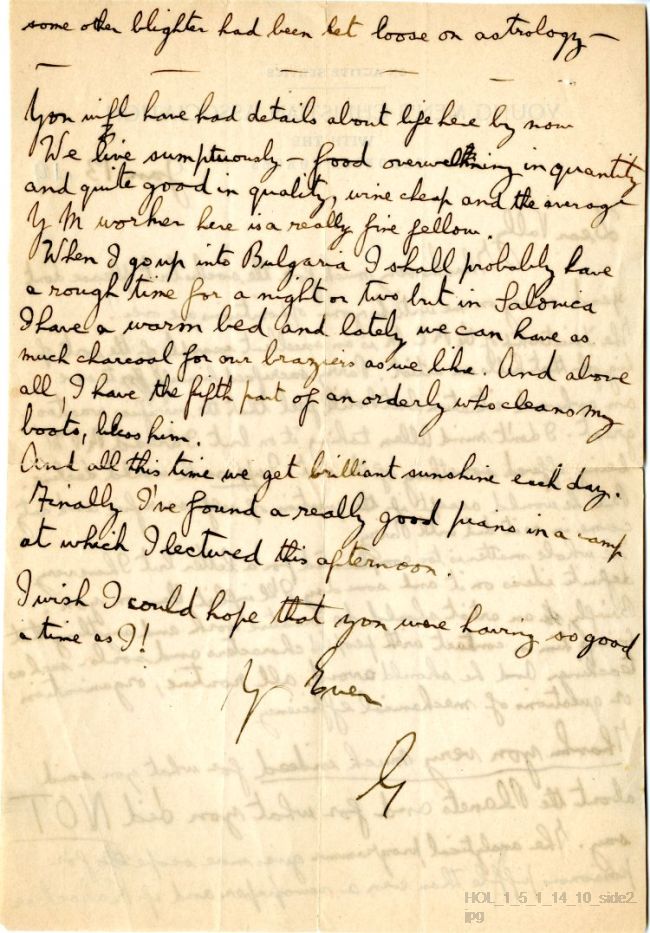 some other blighter had been let loose on astrology —
You will have had details about life here by now
We live sumptuously — food overwelhming in quantity
and quite good in quality, wine cheap and the average
Y M worker here is a really fine fellow.
When I go up into Bulgaria I shall probably have
a rough time for a night or two but in Salonica
I have a warm bed and lately we can have as
much charcoal for our braziers as we like. And above
all, I have the fifth part of an orderly who cleans my
boots, bless him.
And all this time we get brilliant sunshine each day.
Finally I've found a really good piano in a camp
at which I lectured this afternoon.
I wish I could hope that you were having so good
a time as I!
Y Ever
G
HOL_1_5_1_14_10_side2.
jpg